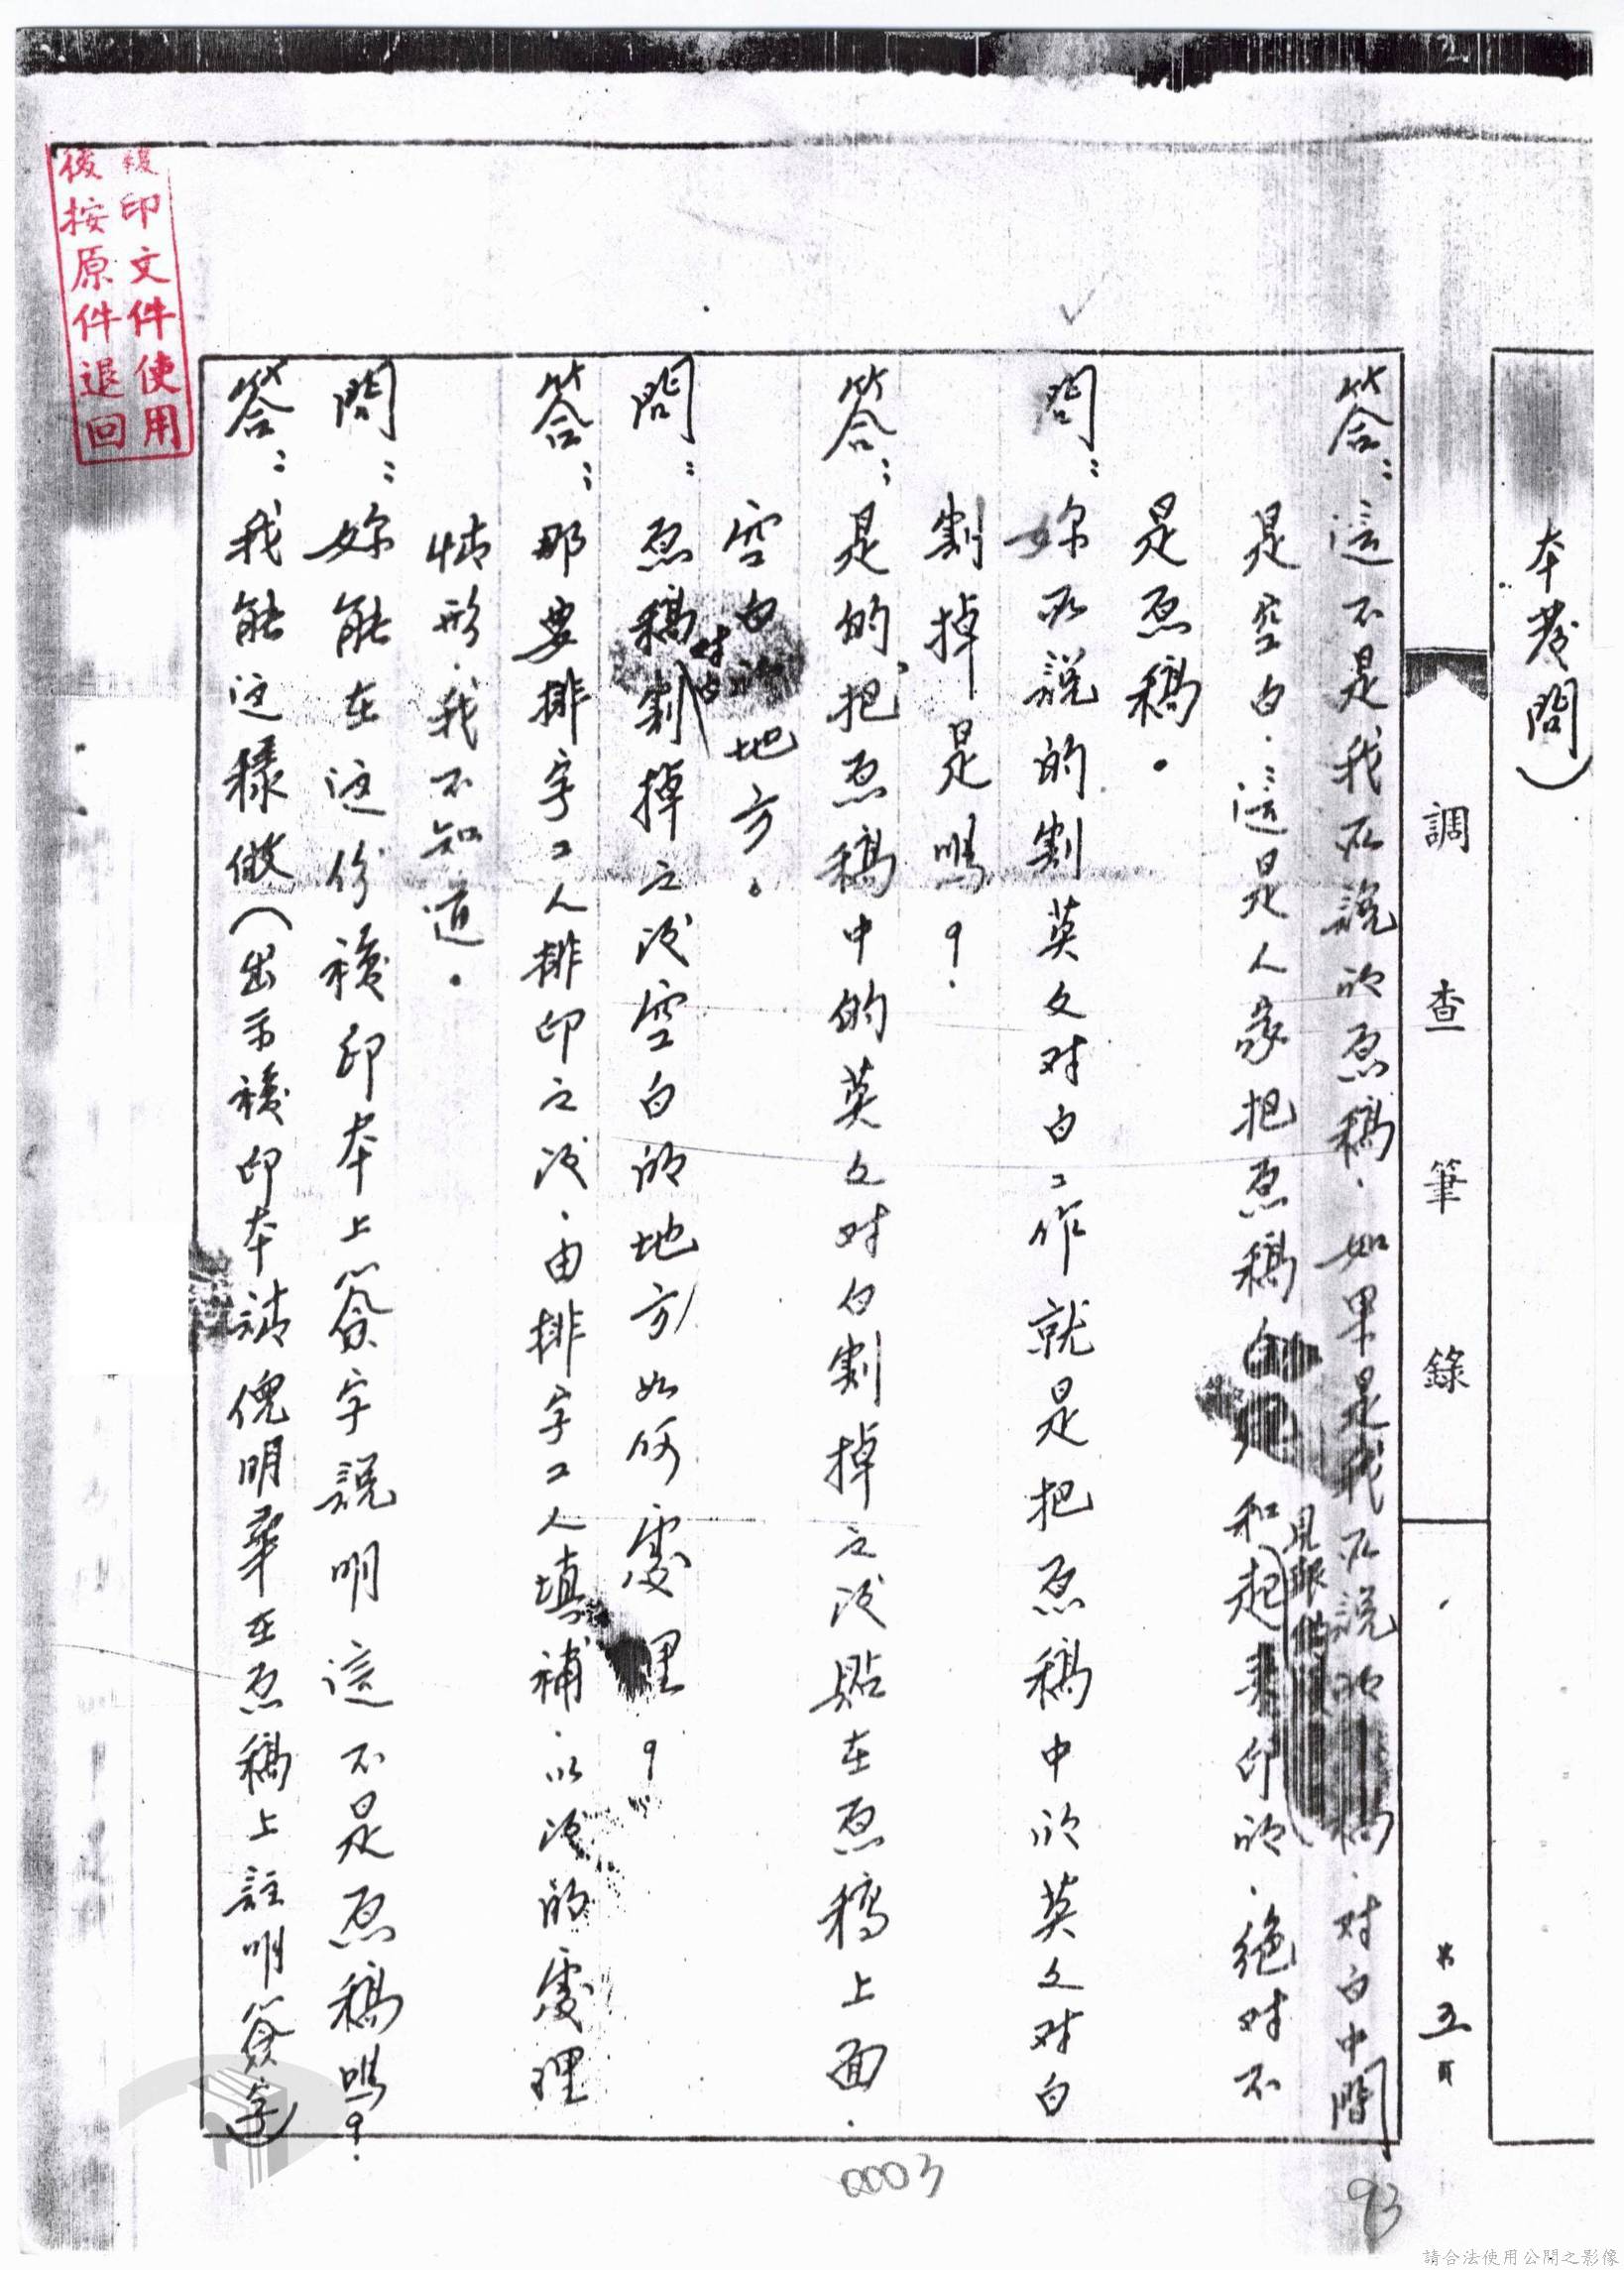 本卷問）
調查筆錄
第五頁
答：這不是我所說的原稿．如果是我所說的 稿．对白中間
是空白．這是人家把原稿白 和起来印的．絕对不
是原稿。
問：妳所說的割英文对白工作就是把原稿中的英文对白
割掉是嗎？
答：是的，把原稿中的英文对白割掉之后貼在原稿上面．
空白 地方。
对白
問：原稿割掉之后空白的地方如何處理？
答：那要排字工人排印之后．由排字工人填補．以后的處理
情形．我不知道。
問：妳能在这份複印本上簽字說明這不是原稿嗎？
答：我能这樣做（出示複印本請倪明華在原稿上註明簽字）
複印文件使用
後按原件退回
0003
93
請合法使用公開之影像